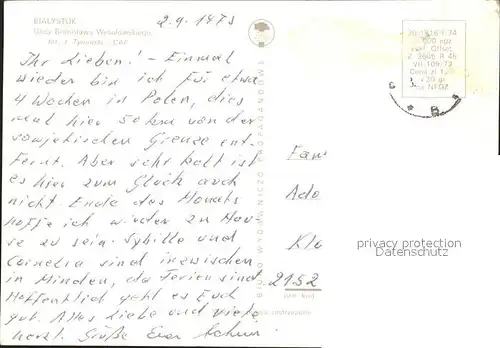 BIAŁYSTOK
Ulica Bronisława Wesołowskiego
fot. J. Tymiński - CAF
2.9.1973
Ihr Lieben! - Einmal
wieder bin ich für etwa
4 Wochen in Polen, dies
mal hier 50 km von der
sowjetischen Grenze ent-
fernt. Aber sehr kalt ist
es hier zum Glück auch
nicht. Ende des Monats
hoffe ich wieder zu Hau-
se zu sein. Sybille und
Cornelia sind inzwischen
in Minden, da Ferien sind
Hoffentlich geht es Euch
gut. Alles Liebe und viele
herzl. Grüße Euer
BIURO WYDAWNICZO PROPAGANDOWE
600 npz
VII-109/73
Cena zł 1,20
Fam
Ado
Klo
2152
privacy protection
watermark